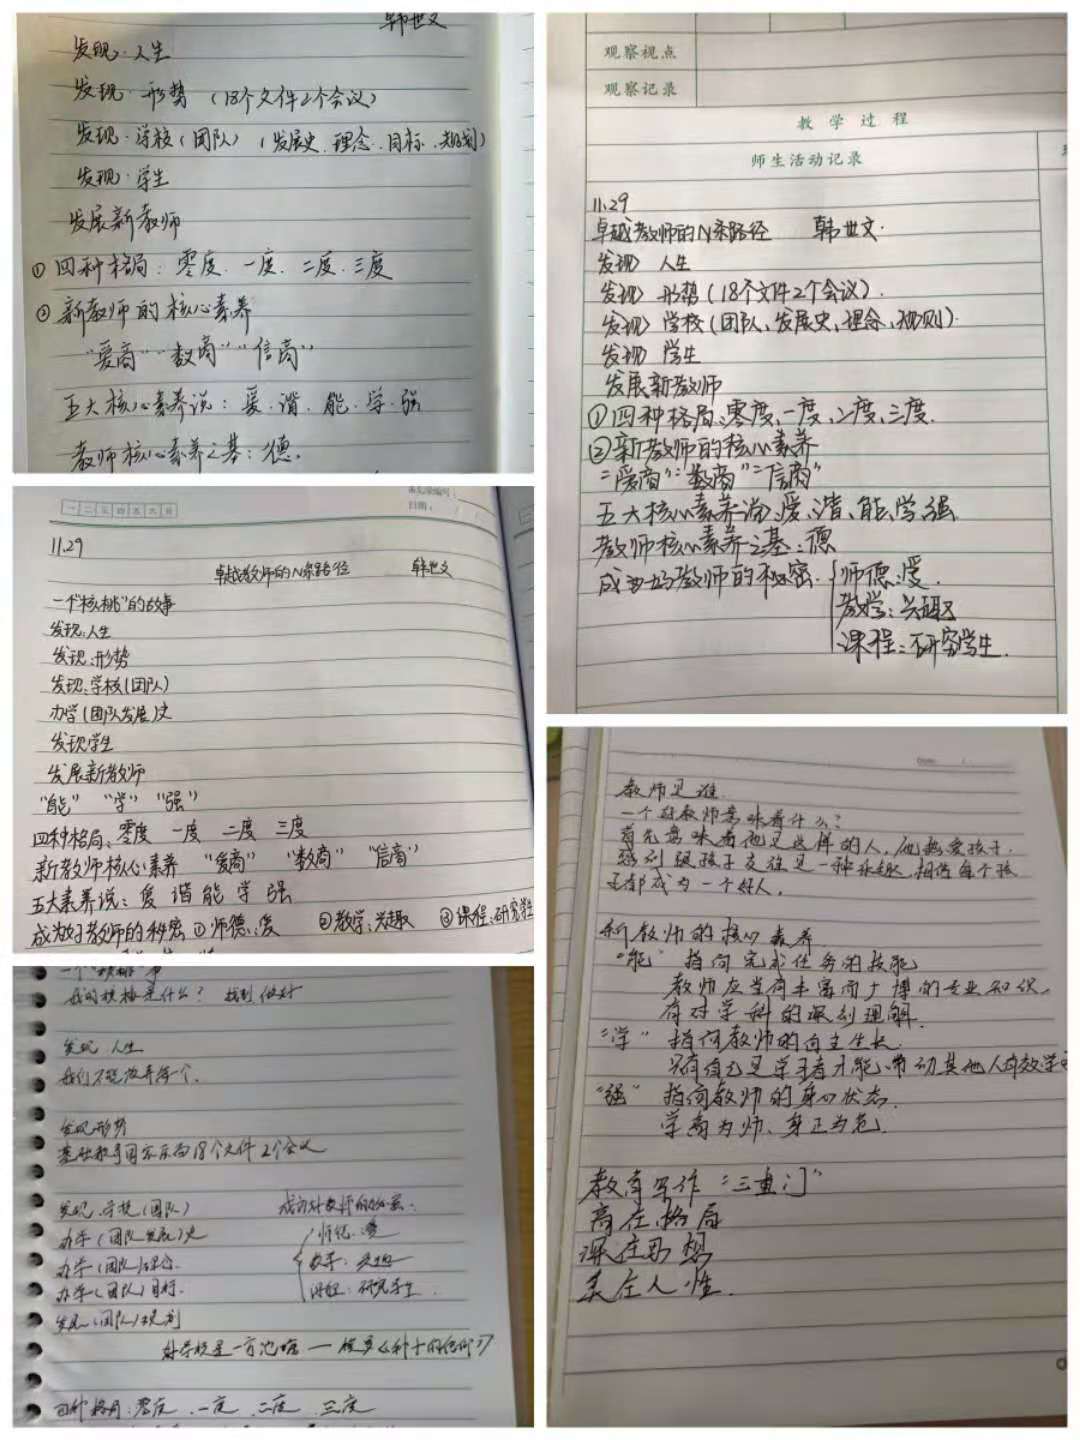 韩世文
发现·人生
发现·形势 (18个文件2个会议)
发现·学校(团队) (发展史.理念.目标.规划)
发现·学生
发展新教师
①四种格局: 零度.一度.二度.三度
②新教师的核心素养
"爱商" "数商" "信商"
五大核心素养说: 爱.谐.能.学.强
教师核心素养之基: 德.
一二三四五六日
日期:
11.29
卓越教师的N条路径 韩世文
一个"核桃"的故事
发现:人生
发现:形势
发现:学校(团队)
办学(团队发展)史
发现学生
发展新教师
"能" "学" "强"
四种格局:零度 一度 二度 三度
新教师核心素养 "爱商" "数商" "信商"
五大素养说: 爱 谐 能 学 强
成为好教师的秘密①师德:爱 ②教学:兴趣 ③课程:研究学生
我的核桃是什么? 找到 做好
发现 人生
我们不能放弃每个.
发现形势
18个文件 2个会议
发现·学校(团队)
办学(团队发展)史
办学(团队)理念
办学(团队)目标
发展(团队)规划
成为好教师的秘密:
师德:爱
教学:兴趣
课程:研究学生.
好学校是一方池塘
四种格局:零度.一度.二度.三度
观察视点
观察记录
教学过程
师生活动记录
11.29
卓越教师的N条路径 韩世文.
发现 人生
发现 形势(18个文件2个会议).
发现 学校(团队、发展史、理念、规则)
发现 学生
发展新教师
①四种格局:零度、一度、二度、三度.
②新教师的核心素养
"爱商" "数商" "信商"
五大核心素养说:爱、谐、能、学、强
教师核心素养之基:德
成为好教师的秘密.
师德:爱.
教学:兴趣
课程:研究学生.
Date:
教师是谁
一个好教师意味着什么?
首先意味着他是这样的人,他热爱孩子.
感到跟孩子交往是一种乐趣,相信每个孩
子都成为一个好人.
新教师的核心素养
"能" 指向完成任务的技能
教师应当有丰富而广博的专业知识,
有对学科的深刻理解.
"学" 指向教师的自主生长.
只有自己是学习者才能带动其他人有效学
"强" 指向教师的身心状态.
学高为师、身正为范.
教育写作"三重门"
高在格局
深在思想
美在人性.